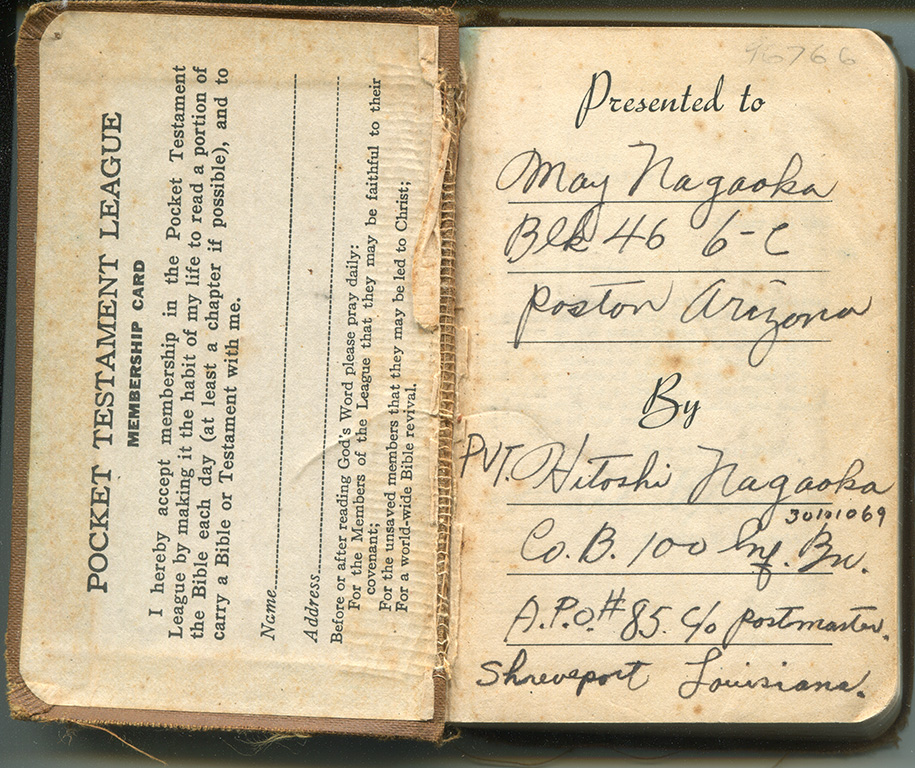 POCKET TESTAMENT LEAGUE
MEMBERSHIP CARD
I hereby accept membership in the Pocket Testament
League by making it the habit of my life to read a portion of
the Bible each day (at least a chapter if possible), and to
carry a Bible or Testament with me.
Name
Address
Before or after reading God's Word please pray daily:
For the Members of the League that they may be faithful to their
covenant;
For the unsaved members that they may be led to Christ;
For a world-wide Bible revival.
Presented to
May Nagaoka
Blk 46 6-C
Poston Arizona
By
Pvt. Hitoshi Nagaoka
30101069
Co. B. 100 Inf. Bn.
A.P.O.# 85. c/o postmaster.
Shreveport Louisiana.